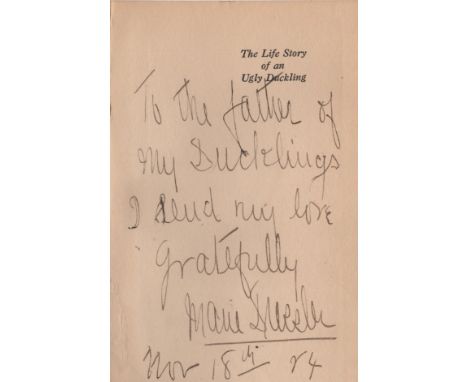 The Life Story
of an
Ugly Duckling
To the father of
my Ducklings
I send my love
Gratefully
Marie Dressler
Nov 18th 24